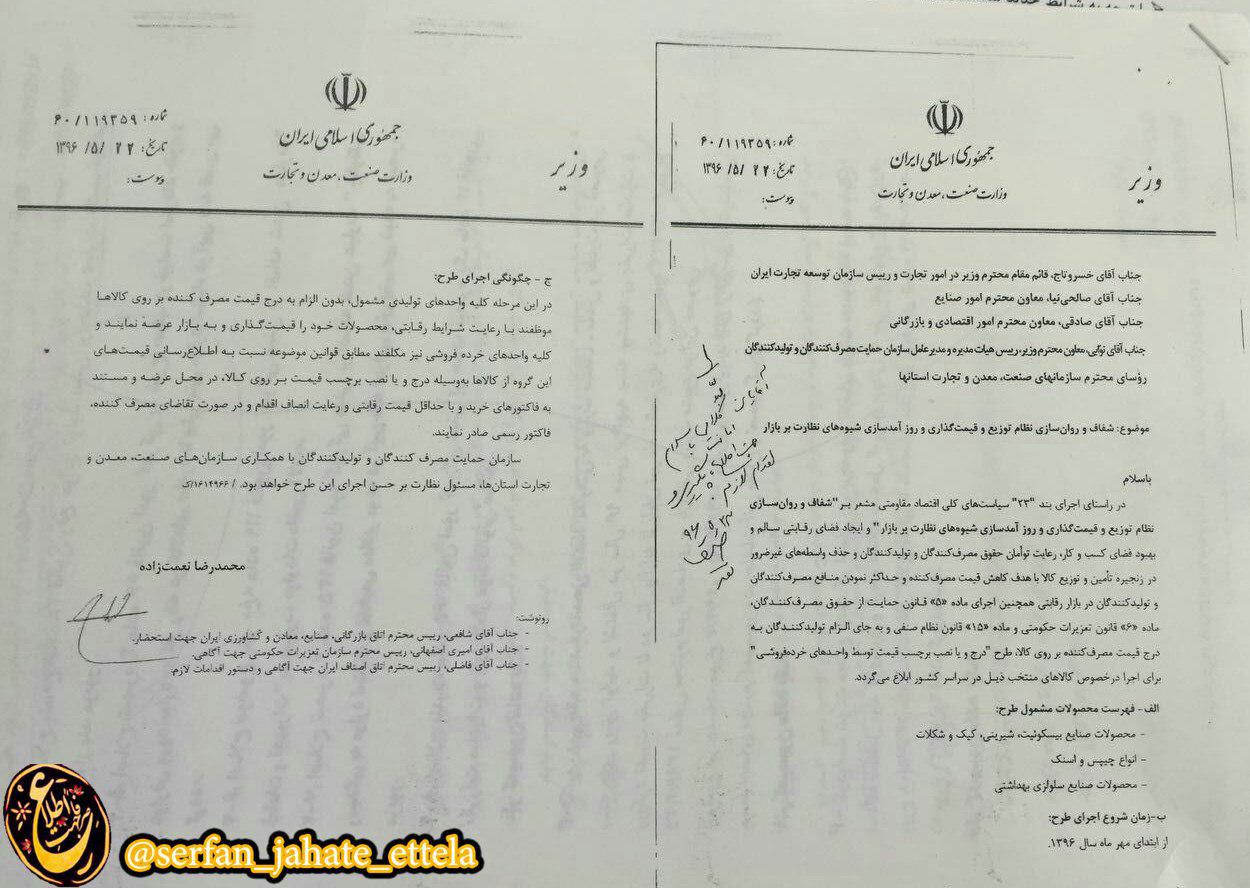 جمهوری اسلامی ایران
وزارت صنعت، معدن و تجارت
وزیر
شماره: ۶۰/۱۱۹۳۵۹
تاریخ: ۱۳۹۶ /۵/ ۲۲
پیوست:
جناب آقای خسروتاج، قائم مقام محترم وزیر در امور تجارت و رییس سازمان توسعه تجارت ایران
جناب آقای صالحی‌نیا، معاون محترم امور صنایع
جناب آقای صادقی، معاون محترم امور اقتصادی و بازرگانی
جناب آقای نوابی، معاون محترم وزیر، رییس هیات مدیره و مدیرعامل سازمان حمایت مصرف‌کنندگان و تولیدکنندگان
رؤسای محترم سازمانهای صنعت، معدن و تجارت استانها
موضوع: شفاف و روان‌سازی نظام توزیع و قیمت‌گذاری و روز آمدسازی شیوه‌های نظارت بر بازار
باسلام
در راستای اجرای بند "۲۳" سیاست‌های کلی اقتصاد مقاومتی مشعر بر "شفاف و روان‌سازی
نظام توزیع و قیمت‌گذاری و روز آمدسازی شیوه‌های نظارت بر بازار" و ایجاد فضای رقابتی سالم و
بهبود فضای کسب و کار، رعایت توأمان حقوق مصرف‌کنندگان و تولیدکنندگان و حذف واسطه‌های غیرضرور
در زنجیره تأمین و توزیع کالا با هدف کاهش قیمت مصرف‌کننده و حداکثر نمودن منافع مصرف‌کنندگان
و تولیدکنندگان در بازار رقابتی همچنین اجرای ماده «۵» قانون حمایت از حقوق مصرف‌کنندگان،
ماده «۶» قانون تعزیرات حکومتی و ماده «۱۵» قانون نظام صنفی و به جای الزام تولیدکنندگان به
درج قیمت مصرف‌کننده بر روی کالا، طرح "درج و یا نصب برچسب قیمت توسط واحدهای خرده‌فروشی"
برای اجرا درخصوص کالاهای منتخب ذیل در سراسر کشور ابلاغ می‌گردد.
الف- فهرست محصولات مشمول طرح:
- محصولات صنایع بیسکوئیت، شیرینی، کیک و شکلات
- انواع چیپس و اسنک
- محصولات صنایع سلولزی بهداشتی
ب-زمان شروع اجرای طرح:
از ابتدای مهر ماه سال ۱۳۹۶.
جمهوری اسلامی ایران
وزارت صنعت، معدن و تجارت
وزیر
شماره: ۶۰/۱۱۹۳۵۹
تاریخ: ۱۳۹۶ /۵/ ۲۲
پیوست:
ج - چگونگی اجرای طرح:
در این مرحله کلیه واحدهای تولیدی مشمول، بدون الزام به درج قیمت مصرف کننده بر روی کالاها
موظفند با رعایت شرایط رقابتی، محصولات خود را قیمت‌گذاری و به بازار عرضه نمایند و
کلیه واحدهای خرده فروشی نیز مکلفند مطابق قوانین موضوعه نسبت به اطلاع‌رسانی قیمت‌های
این گروه از کالاها به‌وسیله درج و یا نصب برچسب قیمت بر روی کالا، در محل عرضه و مستند
به فاکتورهای خرید و با حداقل قیمت رقابتی و رعایت انصاف اقدام و در صورت تقاضای مصرف کننده،
فاکتور رسمی صادر نمایند.
سازمان حمایت مصرف کنندگان و تولیدکنندگان با همکاری سازمان‌های صنعت، معدن و
تجارت استان‌ها، مسئول نظارت بر حسن اجرای این طرح خواهد بود. / ۱۶۱۴۹۶۶/ک
محمدرضا نعمت‌زاده
رونوشت:
- جناب آقای شافعی، رییس محترم اتاق بازرگانی، صنایع، معادن و کشاورزی ایران جهت استحضار.
- جناب آقای امیری اصفهانی، رییس محترم سازمان تعزیرات حکومتی جهت آگاهی.
- جناب آقای فاضلی، رییس محترم اتاق اصناف ایران جهت آگاهی و دستور اقدامات لازم.
صرفا جهت اطلاع
@serfan_jahate_ettela